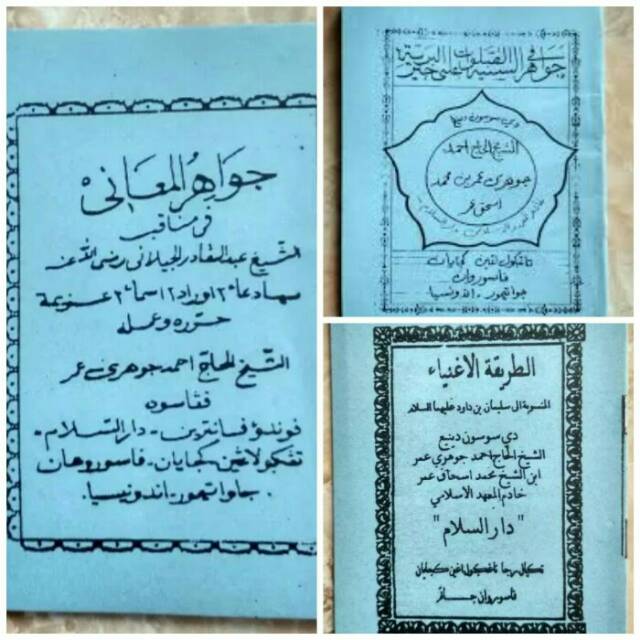 جواهر المعاني
في مناقب
الشيخ عبد القادر الجيلاني رضي الله عنه
حرره وعمله
الشيخ الحاج احمد جوهري عمر
فاسوروان
فوندوء فسانترين - دار السلام -
تڠكولاڠين كجايان - فاسوروهان
جاوا تيمور - اندونيسيا .
جواهر السنية في الصلوات على خير البرية
دي سوسون دينيع
الشيخ الحاج احمد
جوهري عمر بن محمد
اسحق عمر
كجايان
فاسوروان
جوا تيمور . اندونسيا
الطريقة الأغنياء
المنسوبة الى سليمان بن داود عليهما السلام
دي سوسون دينيع
الشيخ الحاج احمد جوهري عمر
ابن الشيخ محمد اسحاق عمر
خادم المعهد الاسلامي
"دار السلام"